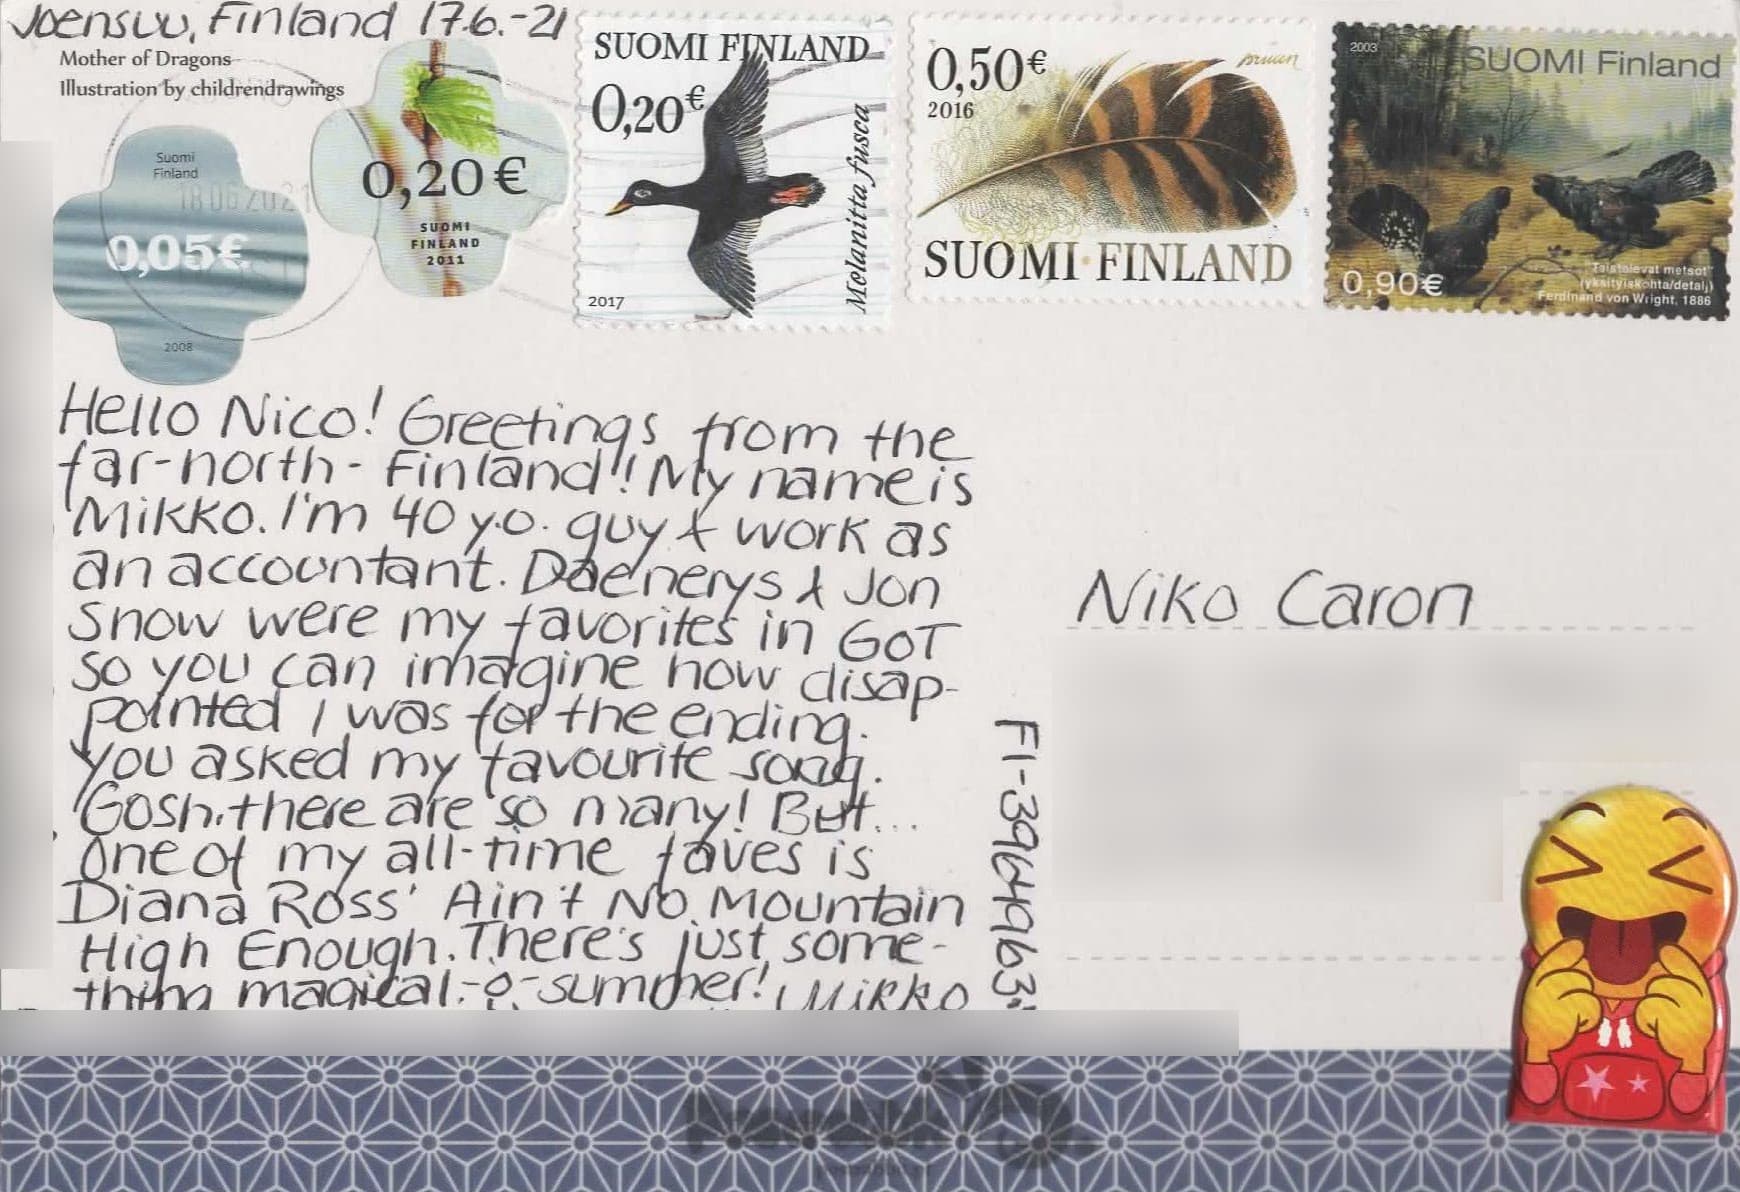 Joensuu, Finland 17.6.-21
Mother of Dragons
Illustration by childrendrawings
Suomi
Finland
18 06 2021
0,05€
2008
0,20€
SUOMI
FINLAND
2011
SUOMI FINLAND
0,20€
Melanitta fusca
2017
0,50€
2016
SUOMI·FINLAND
2003
SUOMI Finland
0,90€
Taistelevat metsot
(yksityiskohta/detalj)
Ferdinand von Wright, 1886
Hello Nico! Greetings from the
far-north - Finland!! My name is
Mikko. I'm 40 y.o. guy & work as
an accountant. Daenerys & Jon
Snow were my favorites in GOT
so you can imagine how disap-
pointed I was for the ending.
You asked my favourite song.
Gosh, there are so many! But...
One of my all-time faves is
Diana Ross' Ain't No Mountain
High Enough. There's just some-
thing magical.-o-summer! Mikko
FI-3964963
Niko Caron